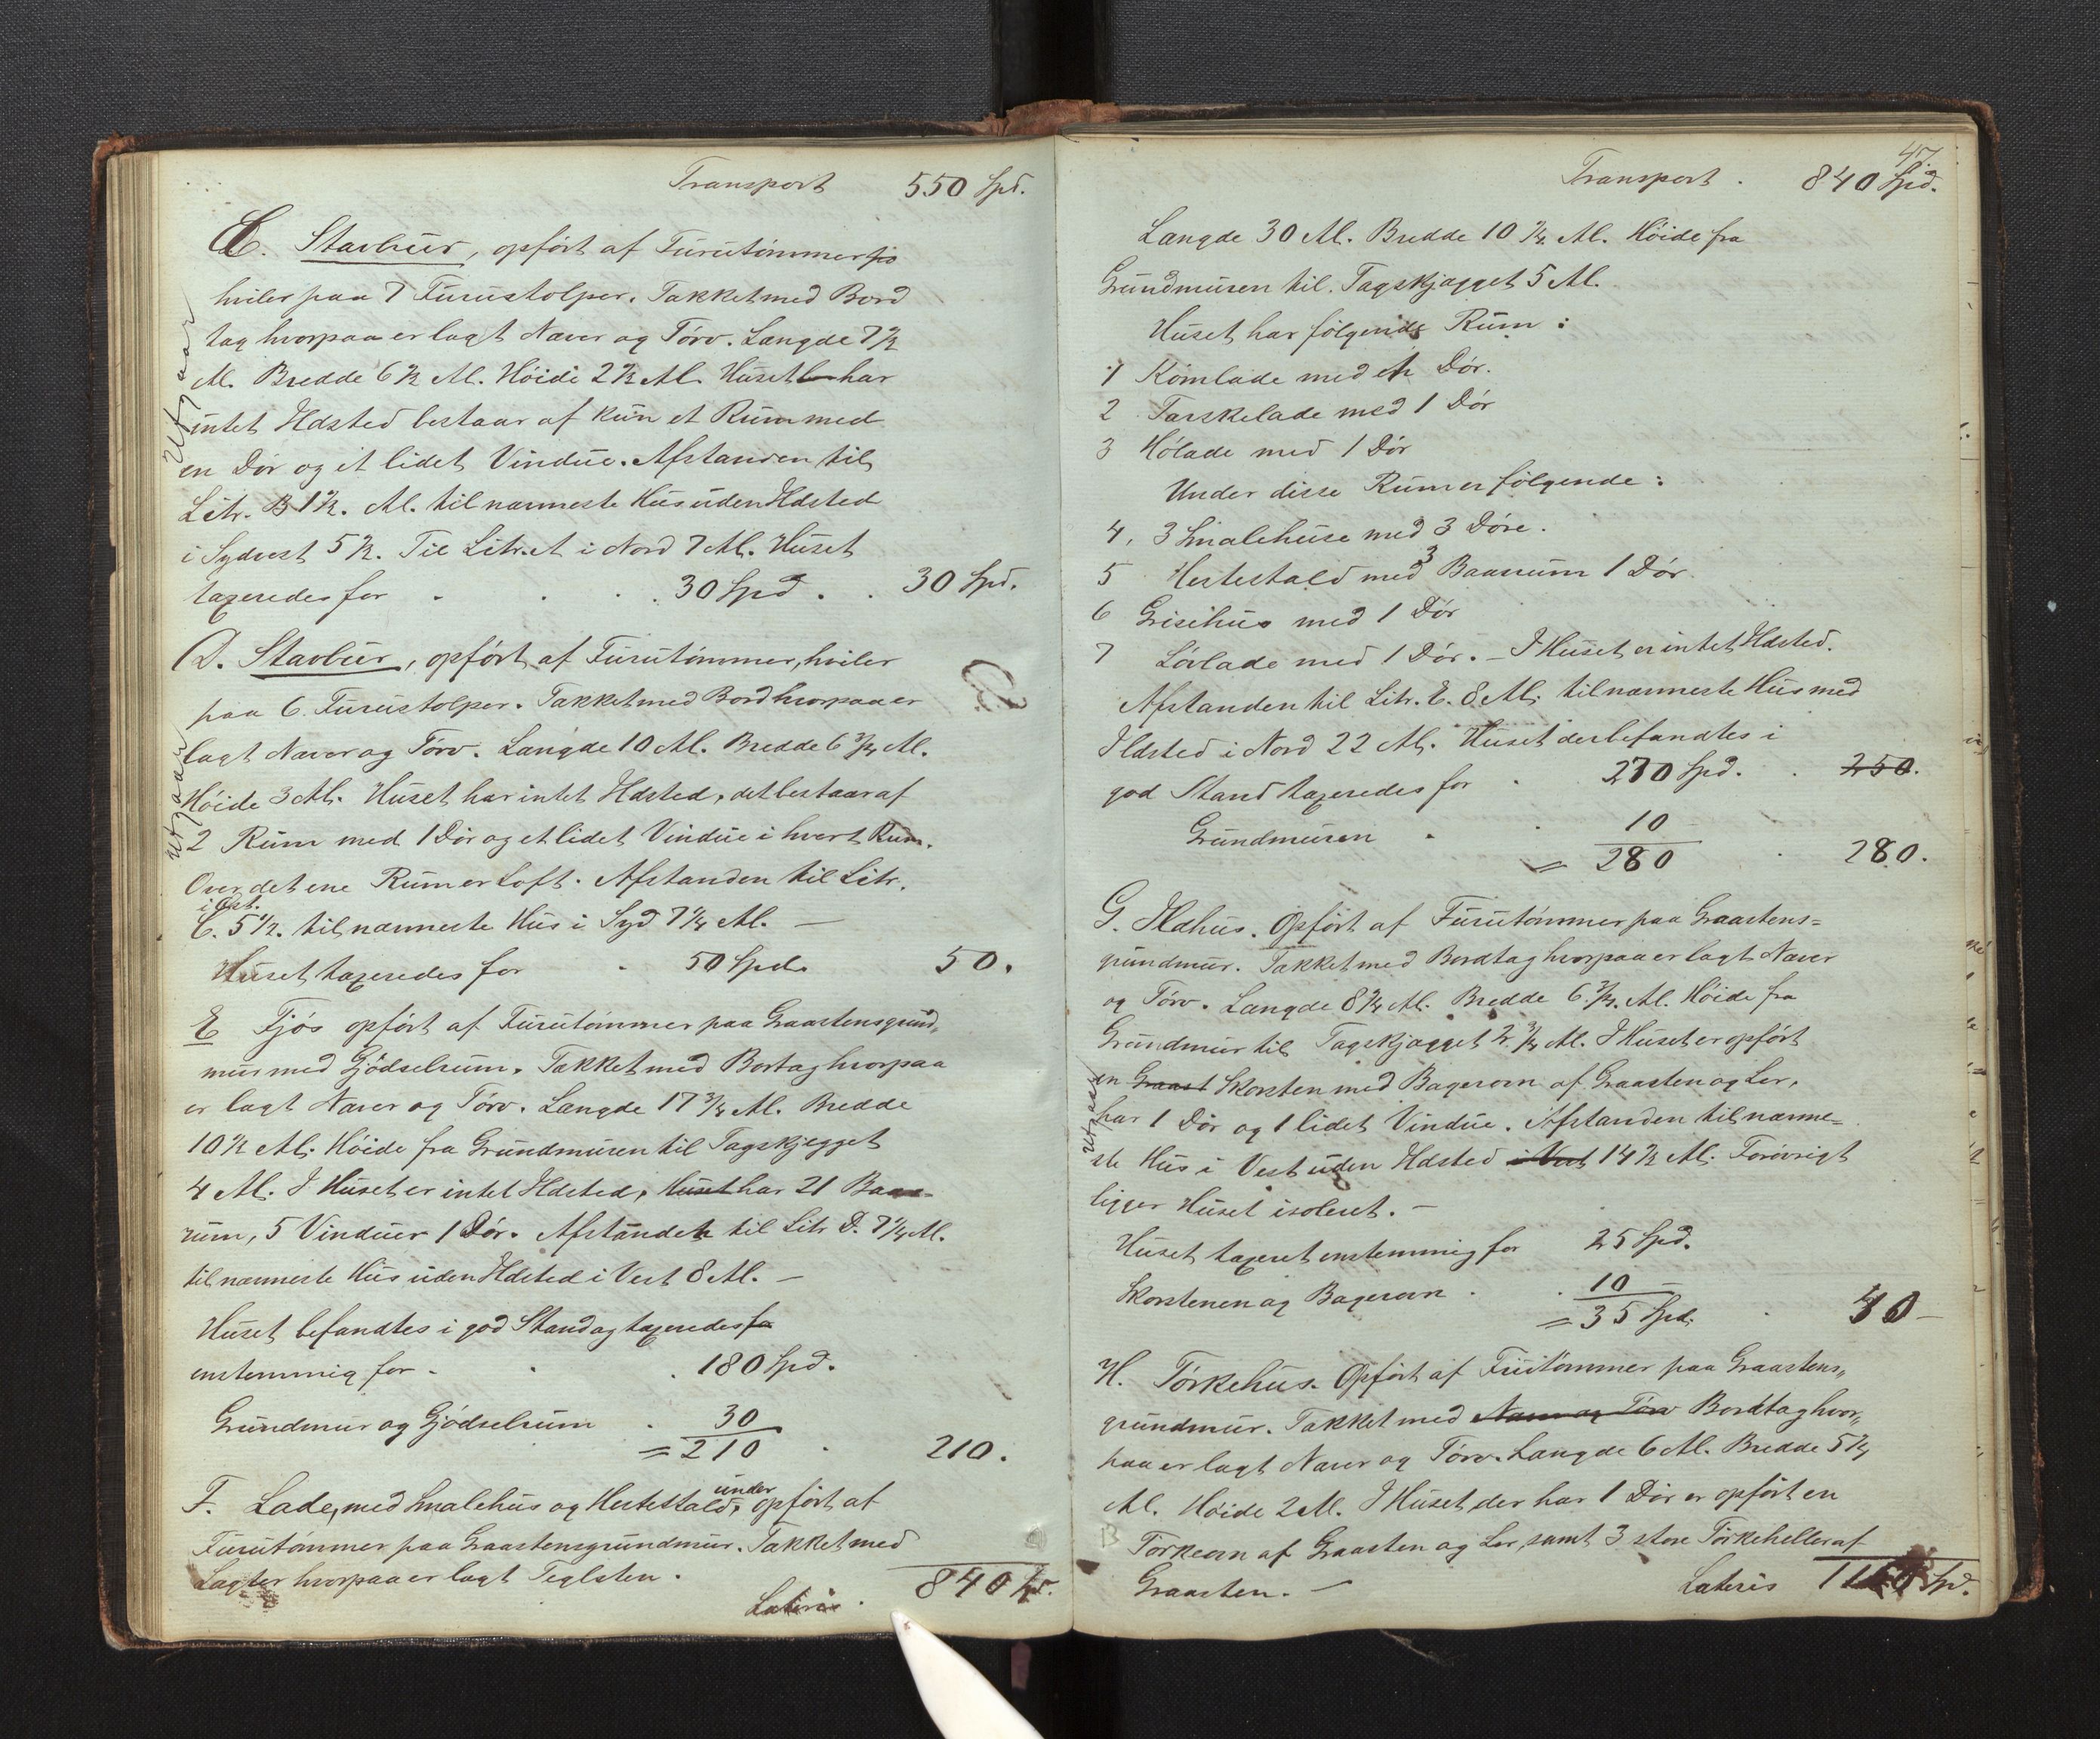 Transport 550 Spd.
C. Stavbur, opført af Furutømmer
hviler paa 7 Furustolper. Takket med Bord
tag hvorpaa er lagt Næver og Törv. Længde 7 1/2
Al. Bredde 6 1/2 Al. Höide 2 1/2 Al. Huset har
intet Ildsted bestaar af kun et Rum med
en Dör og et lidet Vindue. Afstanden til
Litr. B 1 1/2. Al. til nærmeste Hus uden Ildsted
i Sydvest 5 1/2. Til Litr. A i Nord 7 Al. Huset
taxeredes for . . . . 30 Spd . . 30 Spd.
Utgaar
D. Stavbur, opfört af Furutömmer, hviler
paa 6 Furustolper. Takket med Bord hvorpaa er
lagt Næver og Törv. Længde 10 Al. Bredde 6 3/4 Al.
Höide 3 Al. Huset har intet Ildsted, det bestaar af
2 Rum med 1 Dör og et lidet Vindue i hvert Rum.
Over det ene Rum er Loft. Afstanden til Litr.
i Öst.
C. 5 1/2. til nærmeste Hus i Syd 7 1/4 Al. —
Huset taxeredes for . 50 Spd. 50.
Utgaar
E Fjös opfört af Furutömmer paa Graastensgrund„
mur med Gjödselrum. Takket med Bortag hvorpaa
er lagt Næver og Törv. Længde 17 3/4 Al. Bredde
10 1/2 Al. Höide fra Grundmuren til Tagskjegget
4 Al. I Huset er intet Ildsted, Huset har 21 Baas-
rum, 5 Vinduer 1 Dör. Afstanden til Litr D. 7 1/4 Al.
til nærmeste Hus uden Ildsted i Vest 8 Al. —
Huset befandtes i god Stand og taxeredes fo
enstemmig for . . . 180 Spd.
Grundmur og Gjödselrum . 30
= 210 . 210.
F. Lade, med Smalehus og Hestestald under, opfört af
Furutömmer paa Graastensgrundmur. Takket med
Lægter hvorpaa er lagt Teglsten.
Lateris . 840 Spd.
47.
Transport . 840 Spd.
Længde 30 Al. Bredde 10 1/4 Al. Höide fra
Grundmuren til Tagskjægget 5 Al.
Huset har fölgende Rum :
1 Kornlade med en Dör.
2 Tærskelade med 1 Dör
3 Hölade med 1 Dör
Under disse Rum er fölgende :
4, 3 Smalehuse med 3 Döre.
5 Hestestald med 3 Baasrum 1 Dör.
6 Grisehus med 1 Dör
7 Lövlade med 1 Dör. – I Huset er intet Ildsted.
Afstanden til Litr. E. 8 Al, til nærmeste Hus med
Ildsted i Nord 22 Al. Huset der befandtes i
god Stand taxeredes for . 270 Spd. . 250.
Grundmuren . . 10
= 280 . 280.
G. Ildhus. Opfört af Furutömmer paa Graastens=
grundmur. Takket med Bordtag hvorpaa er lagt Næver
og Törv. Længde 8 3/4 Al. Bredde 6 3/4. Al. Höide fra
Grundmur til Tagskjægget 2 3/4 Al. I Huset er opfört
en Graast Skorsten med Bagerovn af Graasten og Ler,
har 1 Dör og 1 lidet Vindue. Afstanden til nærme=
ste Hus i Vest uden Ildsted i Vest 14 1/2 Al. Forövrigt
ligger Huset isoleret. –
Utgaar
Huset taxeret enstemmig for 25 Spd.
Skorstenen og Bagerovn . . 10
= 35 Spd. . 40 –
H. Törkehus. Opfört af Furutömmer paa Graastens„
grundmur. Takket med Næver og Törv Bordtag hvor„
paa er lagt Næver og Törv. Længde 6 Al. Bredde 5 1/4
Al. Höide 2 Al. I Huset der har 1 Dör er opfört en
Törkeovn af Graasten og Ler, samt 3 store Törkeheller af
Graasten. –
Lateris Spd.